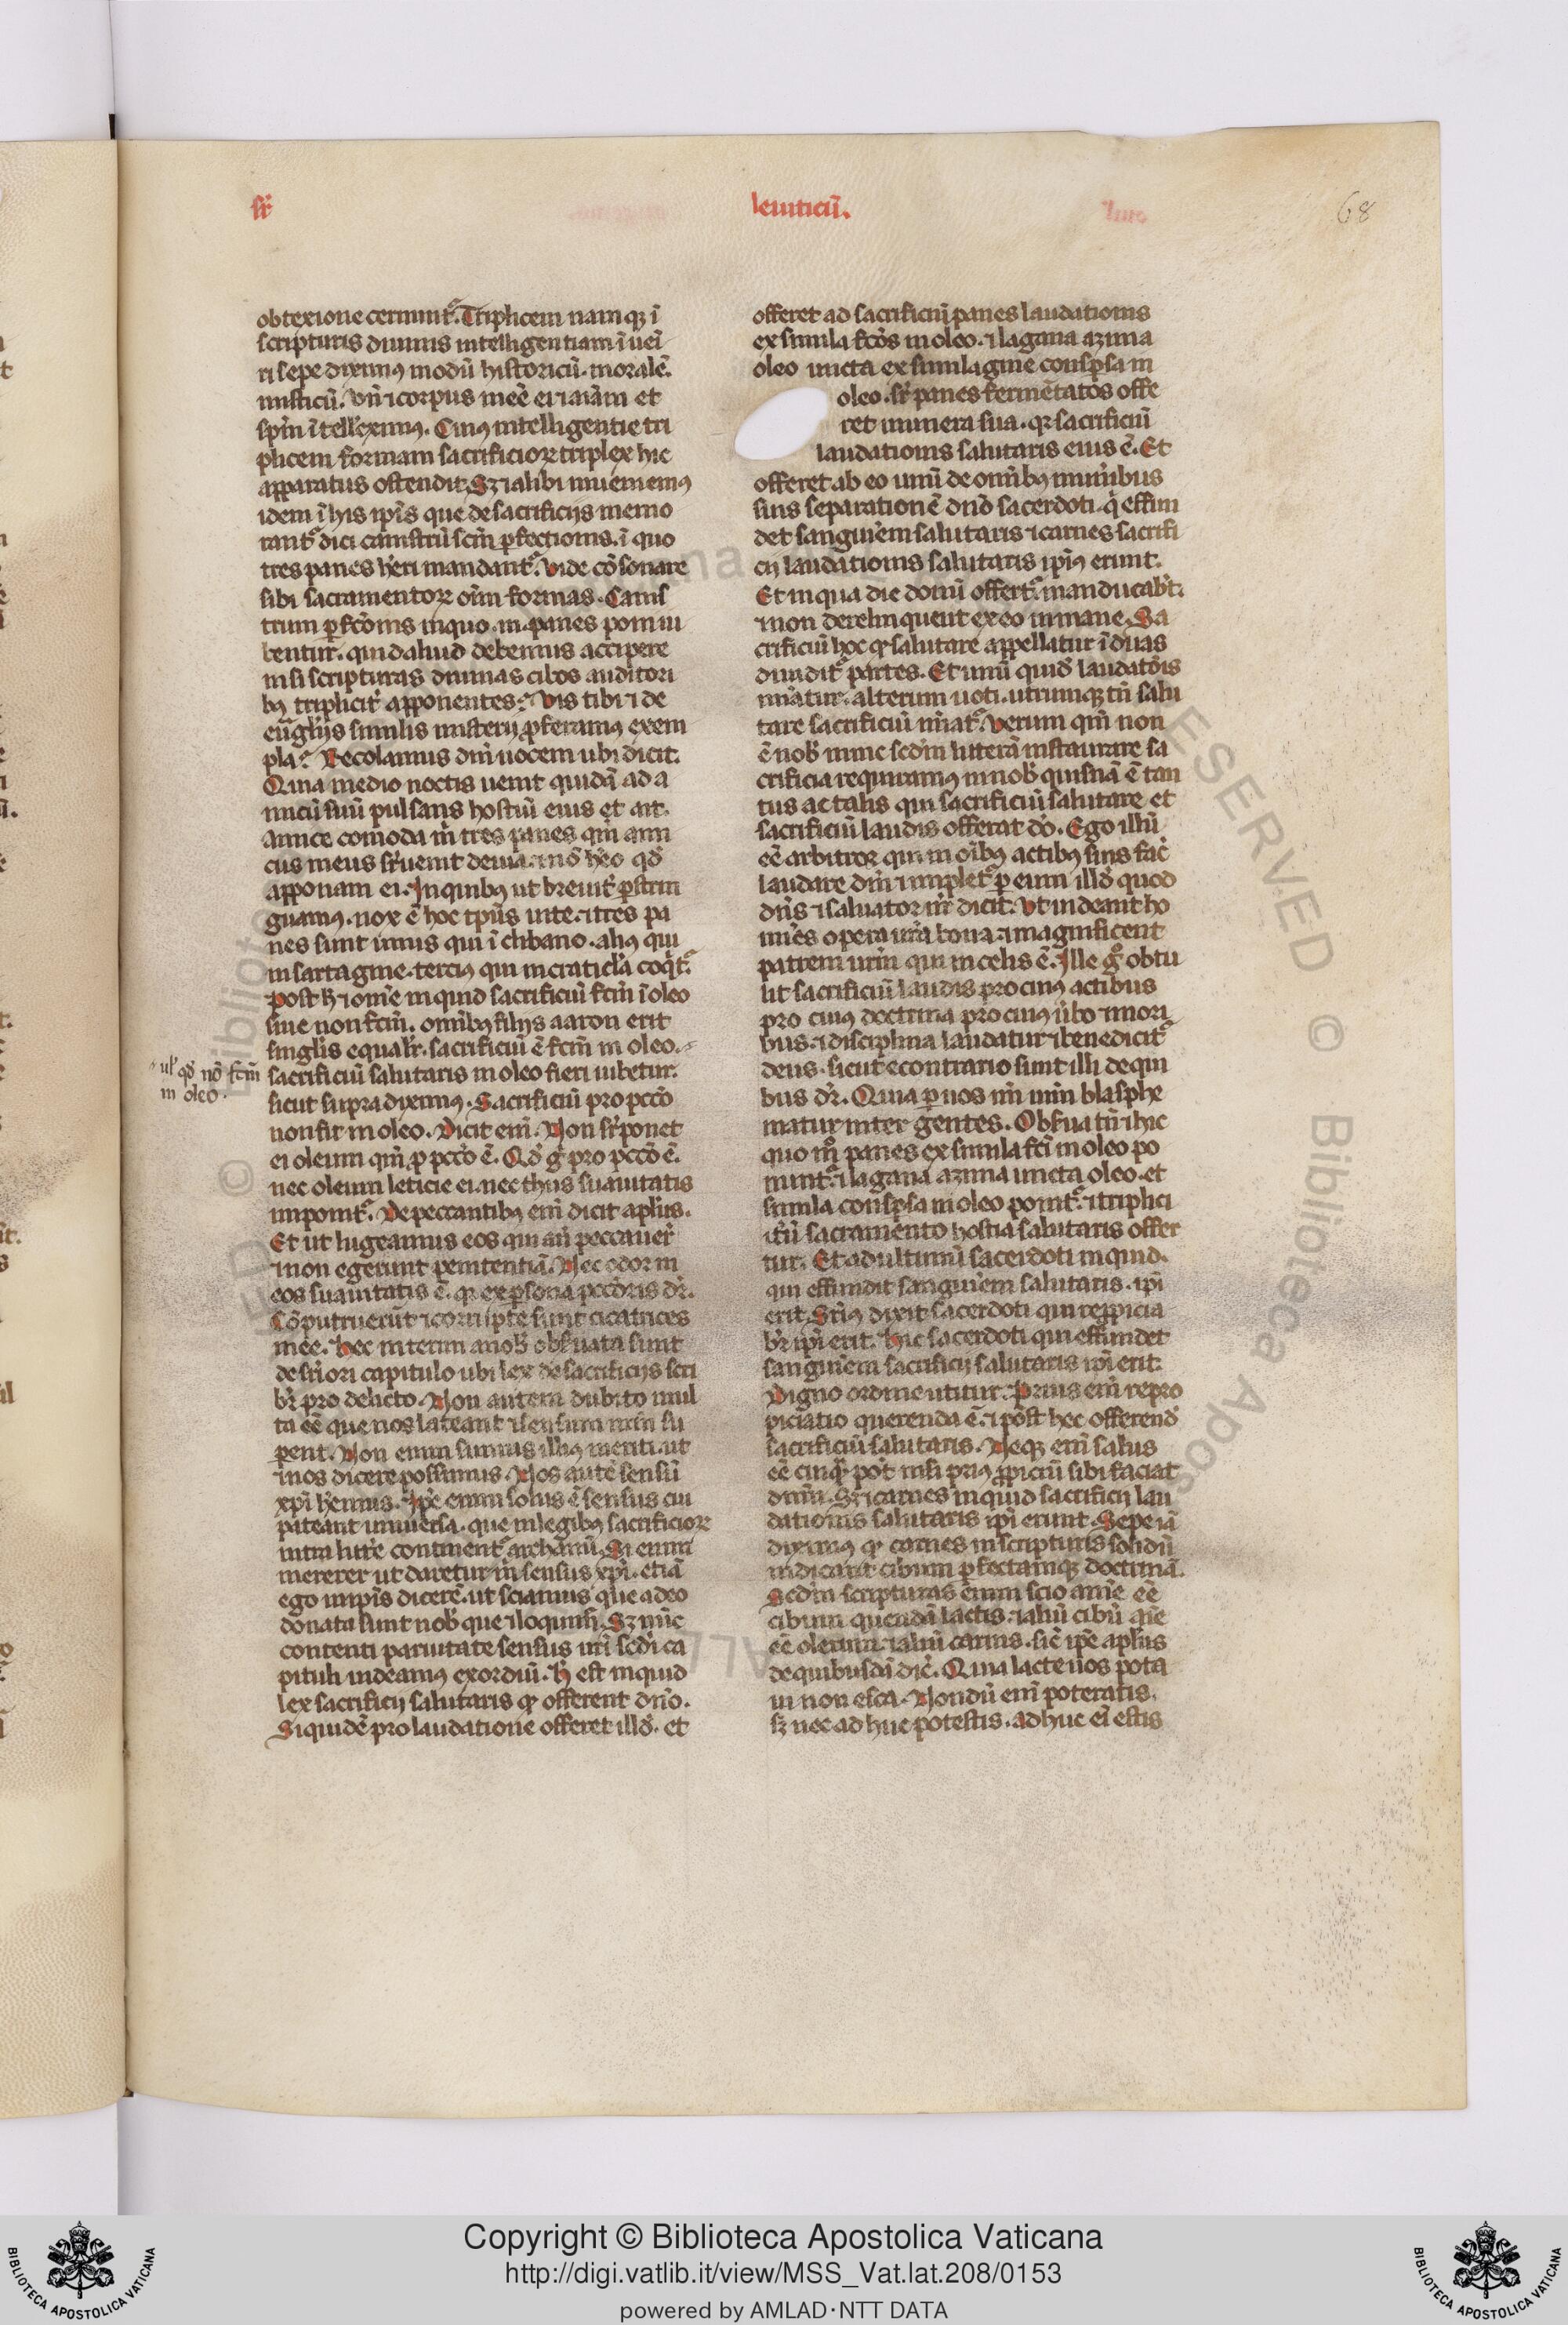 sr̄
leuiticū.
68
obtexione cernunt᷑. Triplicem namq̨ ī
scripturis diuinis intelligentiam īueī
ri sepe diximꝰ modū historicū. moralē.
misticū. Vn̄ ⁊ corpus inēē ei ⁊ aīam et
sp̄m ītelleximꝰ. Cuiꝰ intelligentie tri
plicem formam sacrificioꝝ triplex hic
apparatus ostendit. Sꝫ ⁊ alibi inueniemꝰ
idem ī his ip̄is que de sacrificijs memo
rant᷑ dici canistrū scd̄m ꝑfectionis. ī quo
tres panes h̄eri mandant᷑. Vide cōsonare
sibi sacramentoꝝ oīm formas. Canis
trum ꝑfctōnis in quo .iii. panes poni iu
bentur. quid aliud debemus accipere
nisi scripturas diuinas cibos auditori
bꝰ triplicit̄ apponentes? Vis tibi ⁊ de
euāgl̄ijs similis misterij ꝓferamꝰ exem
pla? Recolamus dn̄i uocem ubi dicit.
Quia medio noctis uenit quidā ad a
micū suū pulsans hostiū eius et ait.
amice comoda m̄ tres panes qm̄ ami
cus meus sr̄uenit de uia. ⁊ nō h̄eo qđ
apponam ei. In quibꝰ ut breuit̄ ꝑstrin
guamꝰ. nox ē hoc tp̄us uite. ⁊ tres pa
nes sunt unus qui ī clibano. aliꝰ qui
in sartagine. terciꝰ qui in craticl̄a coq̄t᷑.
Post h̄ ⁊ om̄e inquid sacrificiū fcm̄ ī oleo
siue non fcm̄. omībꝰ filijs aaron erit
singlīs equalr̄. sacrificiū ē fcm̄ in oleo.
ul̄ qđ nō fcm̄
in oleo.
sacrificiū salutaris in oleo fieri iubetur.
sicut supra diximꝰ. Sacrificiū pro pccō
non fit in oleo. Dicit eni᷑. Non sr̄ponet
ei oleum qm̄ ꝓ pccō ē. Qđ g̊ pro pccō ē.
nec oleum leticie ei. nec thus suauitatis
imponit᷑. De peccantibꝰ eni᷑ dicit apl̄us.
Et ut lugeamus eos qui an̄ peccauer̄
⁊ non egerunt penitentiā. Nec odor in
eos suauitatis ē. qꝛ ex ꝑsona pccōris dr̄.
Cōputruerūt ⁊ corrupte sunt cicatrices
mee. Hec interim a nob̄ obẜuata sunt
de sr̄iori capitulo ubi lex de sacrificijs scri
br̄ pro delicto. Non autem dubito mul
ta eē̄ que nos lateant ⁊ sensum nr̄m su
ꝑent. Non enim sumus illiꝰ meriti. ut
⁊ nos dicere possimus. Nos autē sensū
xp̄i h̄emus. Ip̄e enim solus ē sensus cui
pateant uniuersa. que in legibꝰ sacrificioꝝ
intra litt̄e continent᷑ archanū. Si enim
mererer ut daretur m̄ sensus xp̄i. etiā
ego in ip̄is dicerē. ut sciamus que a deo
donata sunt nob̄ que ⁊ loquim᷑. Sꝫ nūc
contenti paruitate sensus nr̄i sedi᷑ ca
pituli uideamꝰ exordiū. H̄ est inquid
lex sacrificij salutaris qꝛ offerent dn̄o.
Siquidē pro laudatione offeret illđ. et
offeret ad sacrificiū panes laudationis
ex simila fc̄os in oleo. ⁊ lagana azima
oleo uncta ex similagine consꝑsa in
oleo. sr̄ panes fermētatos offe
ret munera sua. qꝛ sacrificiū
laudationis salutaris eius ē. Et
offeret ab eo unū de omībꝰ munībus
suis separationē dn̄o sacerdoti. q̄ effun
det sanguinem salutaris ⁊ carnes sacrifi
cij laudationis salutaris ip̄iꝰ erunt.
Et in qua die donū offert᷑. manducabr̄.
⁊ non derelinquent ex eo in mane. Sa
crificiū hoc qꝛ salutare appellatur ī duas
diuidit᷑ partes. Et unū quidē laudatōis
nn̄atur. alterum uoti. utrumq̨ tn̄ salu
tare sacrificiū nn̄at᷑. Verum qm̄ non
ē nob̄ nunc scd̄m litterā instaurare sa
crificia requiramꝰ in nob̄ quisnā ē tan
tus ac talis qui sacrificiū salutare et
sacrificiū laudis offerat dō. Ego illū
eē̄ arbitror qui in oībꝰ actibꝰ suis fac̄
laudare dn̄m ⁊ implet᷑ ꝑ eum illđ quod
dn̄s ⁊ saluator nr̄ dicit. Vt uideant ho
mīes opera ur̄a bona. ⁊ magnificent
patrem ur̄m qui in celis ē. Ille g̊ obtu
lit sacrificiū laudis pro cuiꝰ actibus
pro cuiꝰ doctrina pro cuiꝰ ūbo ⁊ mori
bus. ⁊ disciplina laudatur ⁊ benedicit᷑
deus. sicut econtrario sunt illi de qui
bus dr̄. Quia ꝑ uos nn̄ mm̄ blasphe
matur inter gentes. Obẜua tn̄ ⁊ hic
quo m̊ panes ex simila fc̄i in oleo po
nunt᷑. ⁊ lagana azima uncta oleo. et
simila consꝑsa in oleo ponit᷑. ⁊ triplici
it̄ū sacramento hostia salutaris offer
tur. Et ad ultimū sacerdoti inquid.
qui effundit sanguinem salutaris. ip̄i
erit. Sr̄iꝰ dixit sacerdoti qui reppicia
br̄ ip̄i erit. Hic sacerdoti qui effundet
sanguinem sacrificij salutaris ip̄i erit.
Digno ordine utitur. Prius eni᷑ repro
piciatio querenda ē. ⁊ post hec offerend̄
sacrificiū salutaris. Neq̨ eni᷑ salus
eē̄ cuiq̄ꝫ pōt nisi priꝰ ꝓpiciū sibi faciat
dn̄m. Sꝫ ⁊ carnes inquid sacrificij lau
dationis salutaris ip̄i erunt. Sepe iā
diximꝰ qꝛ carnes in scripturis solidū
indicant cibum ꝑfectamq̨ doctrinā.
Scd̄m scripturas enim scio anīe eē̄
cibum quendā lactis. ⁊ aliū cibū aīe
eē̄ olerum. ⁊ aliū carnis. sic̄ ip̄e apl̄us
de quibusdā dic̄. Quia lacte uos pota
ui non esca. Nondū eni᷑ poteratis.
sꝫ nec adhuc potestis. adhuc ei᷑ estis
Copyright © Biblioteca Apostolica Vaticana
http://digi.vatlib.it/view/MSS_Vat.lat.208/0153
powered by AMLAD·NTT DATA